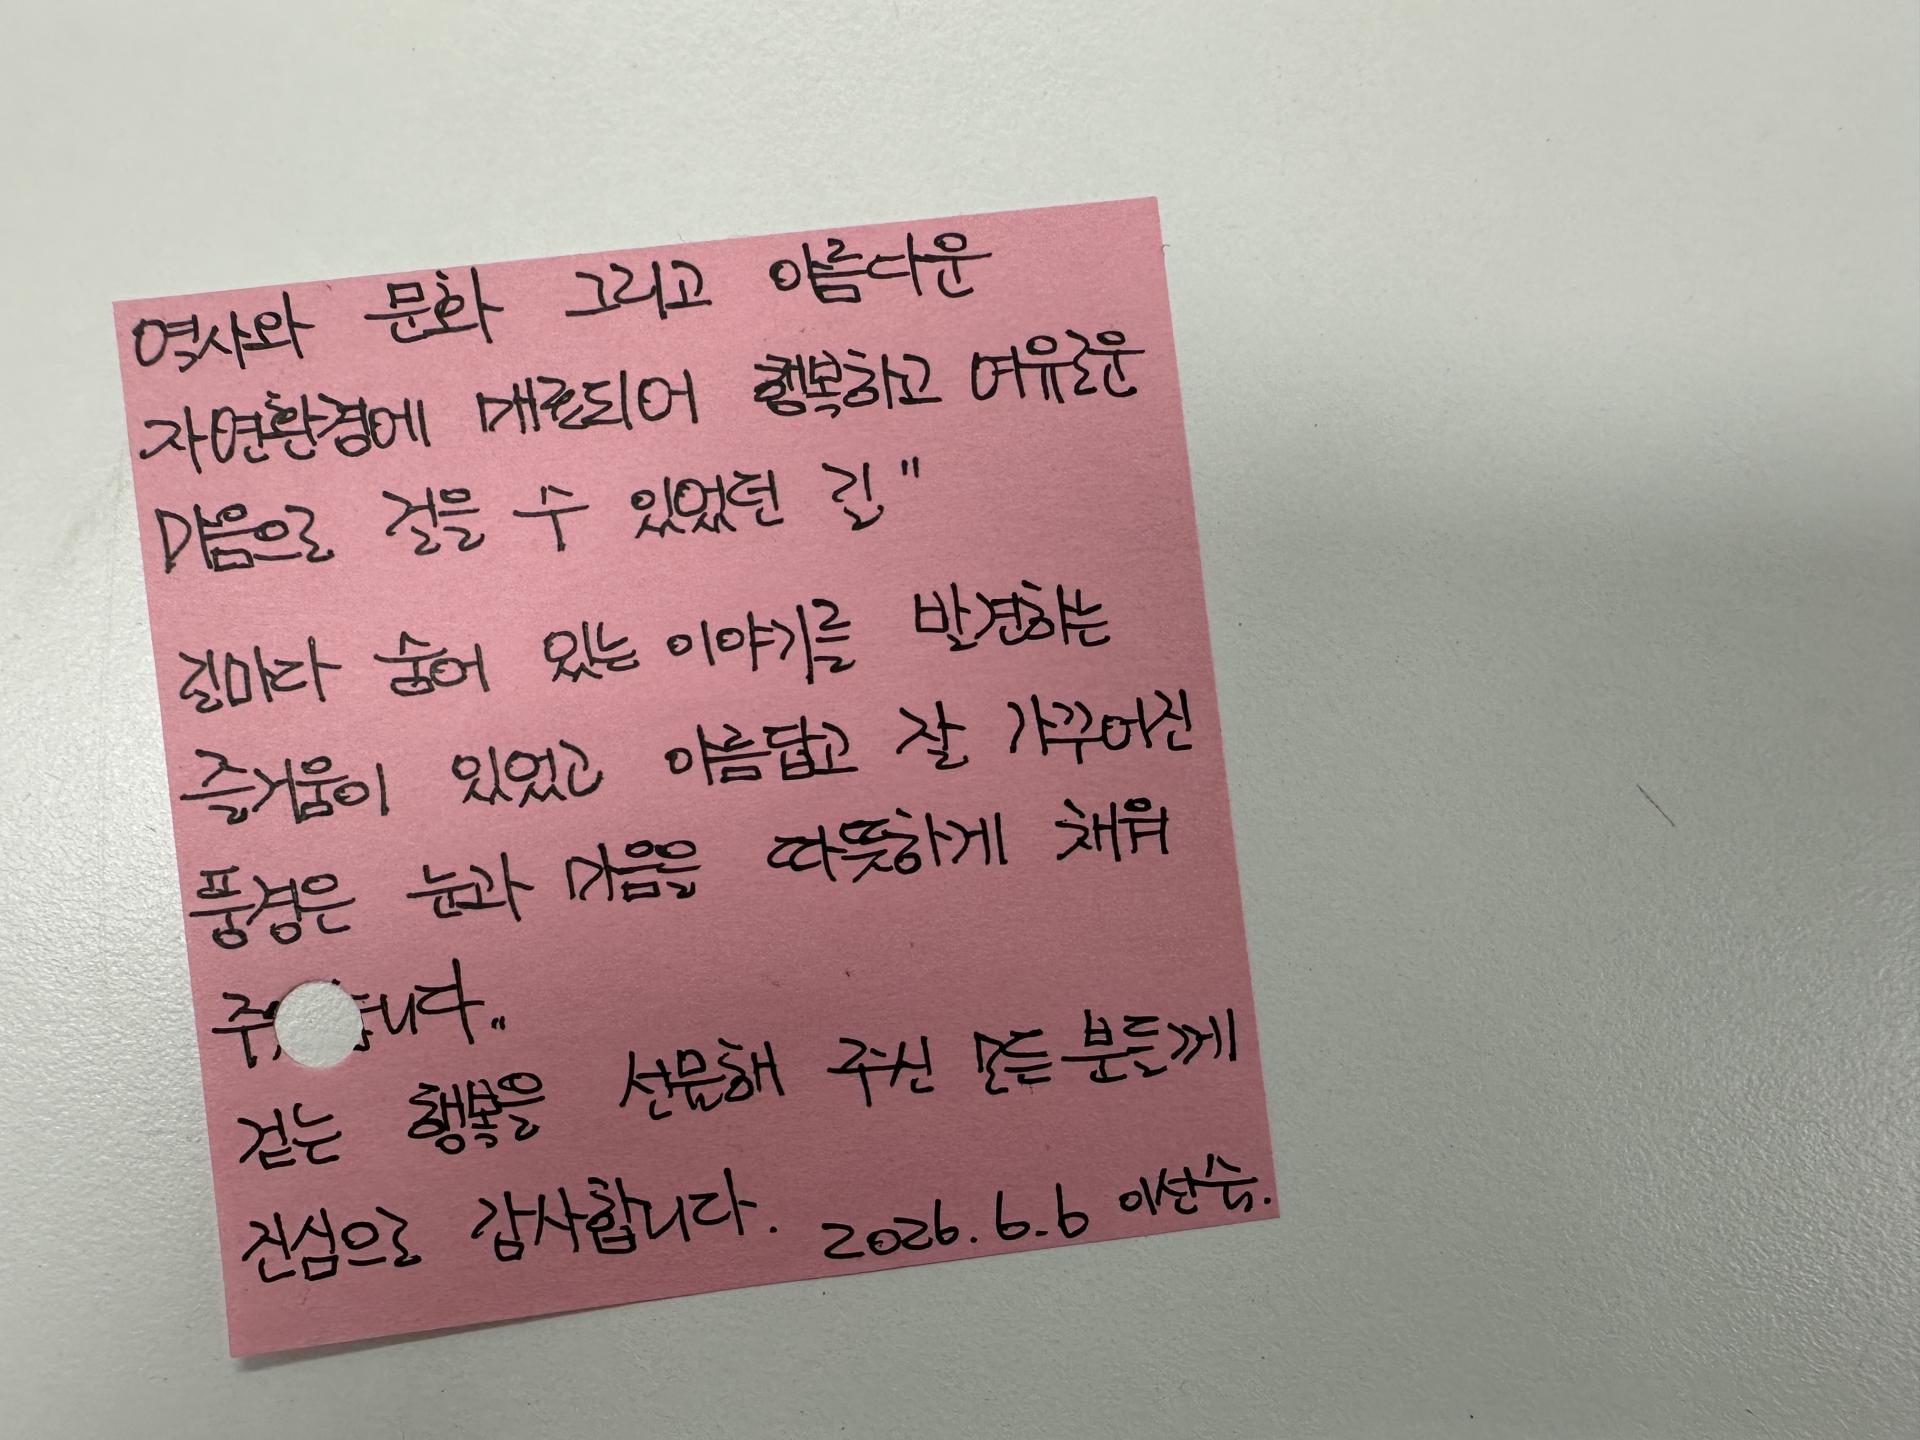 역사와 문화 그리고 아름다운
자연환경에 매료되어 행복하고 여유로운
마음으로 걸을 수 있었던 길"
길마다 숨어 있는 이야기를 발견하는
즐거움이 있었고 아름답고 잘 가꾸어진
풍경은 눈과 마음을 따뜻하게 채워
걷는 행복을 선물해 주신 모든 분들께
진심으로 감사합니다. 2026.6.6